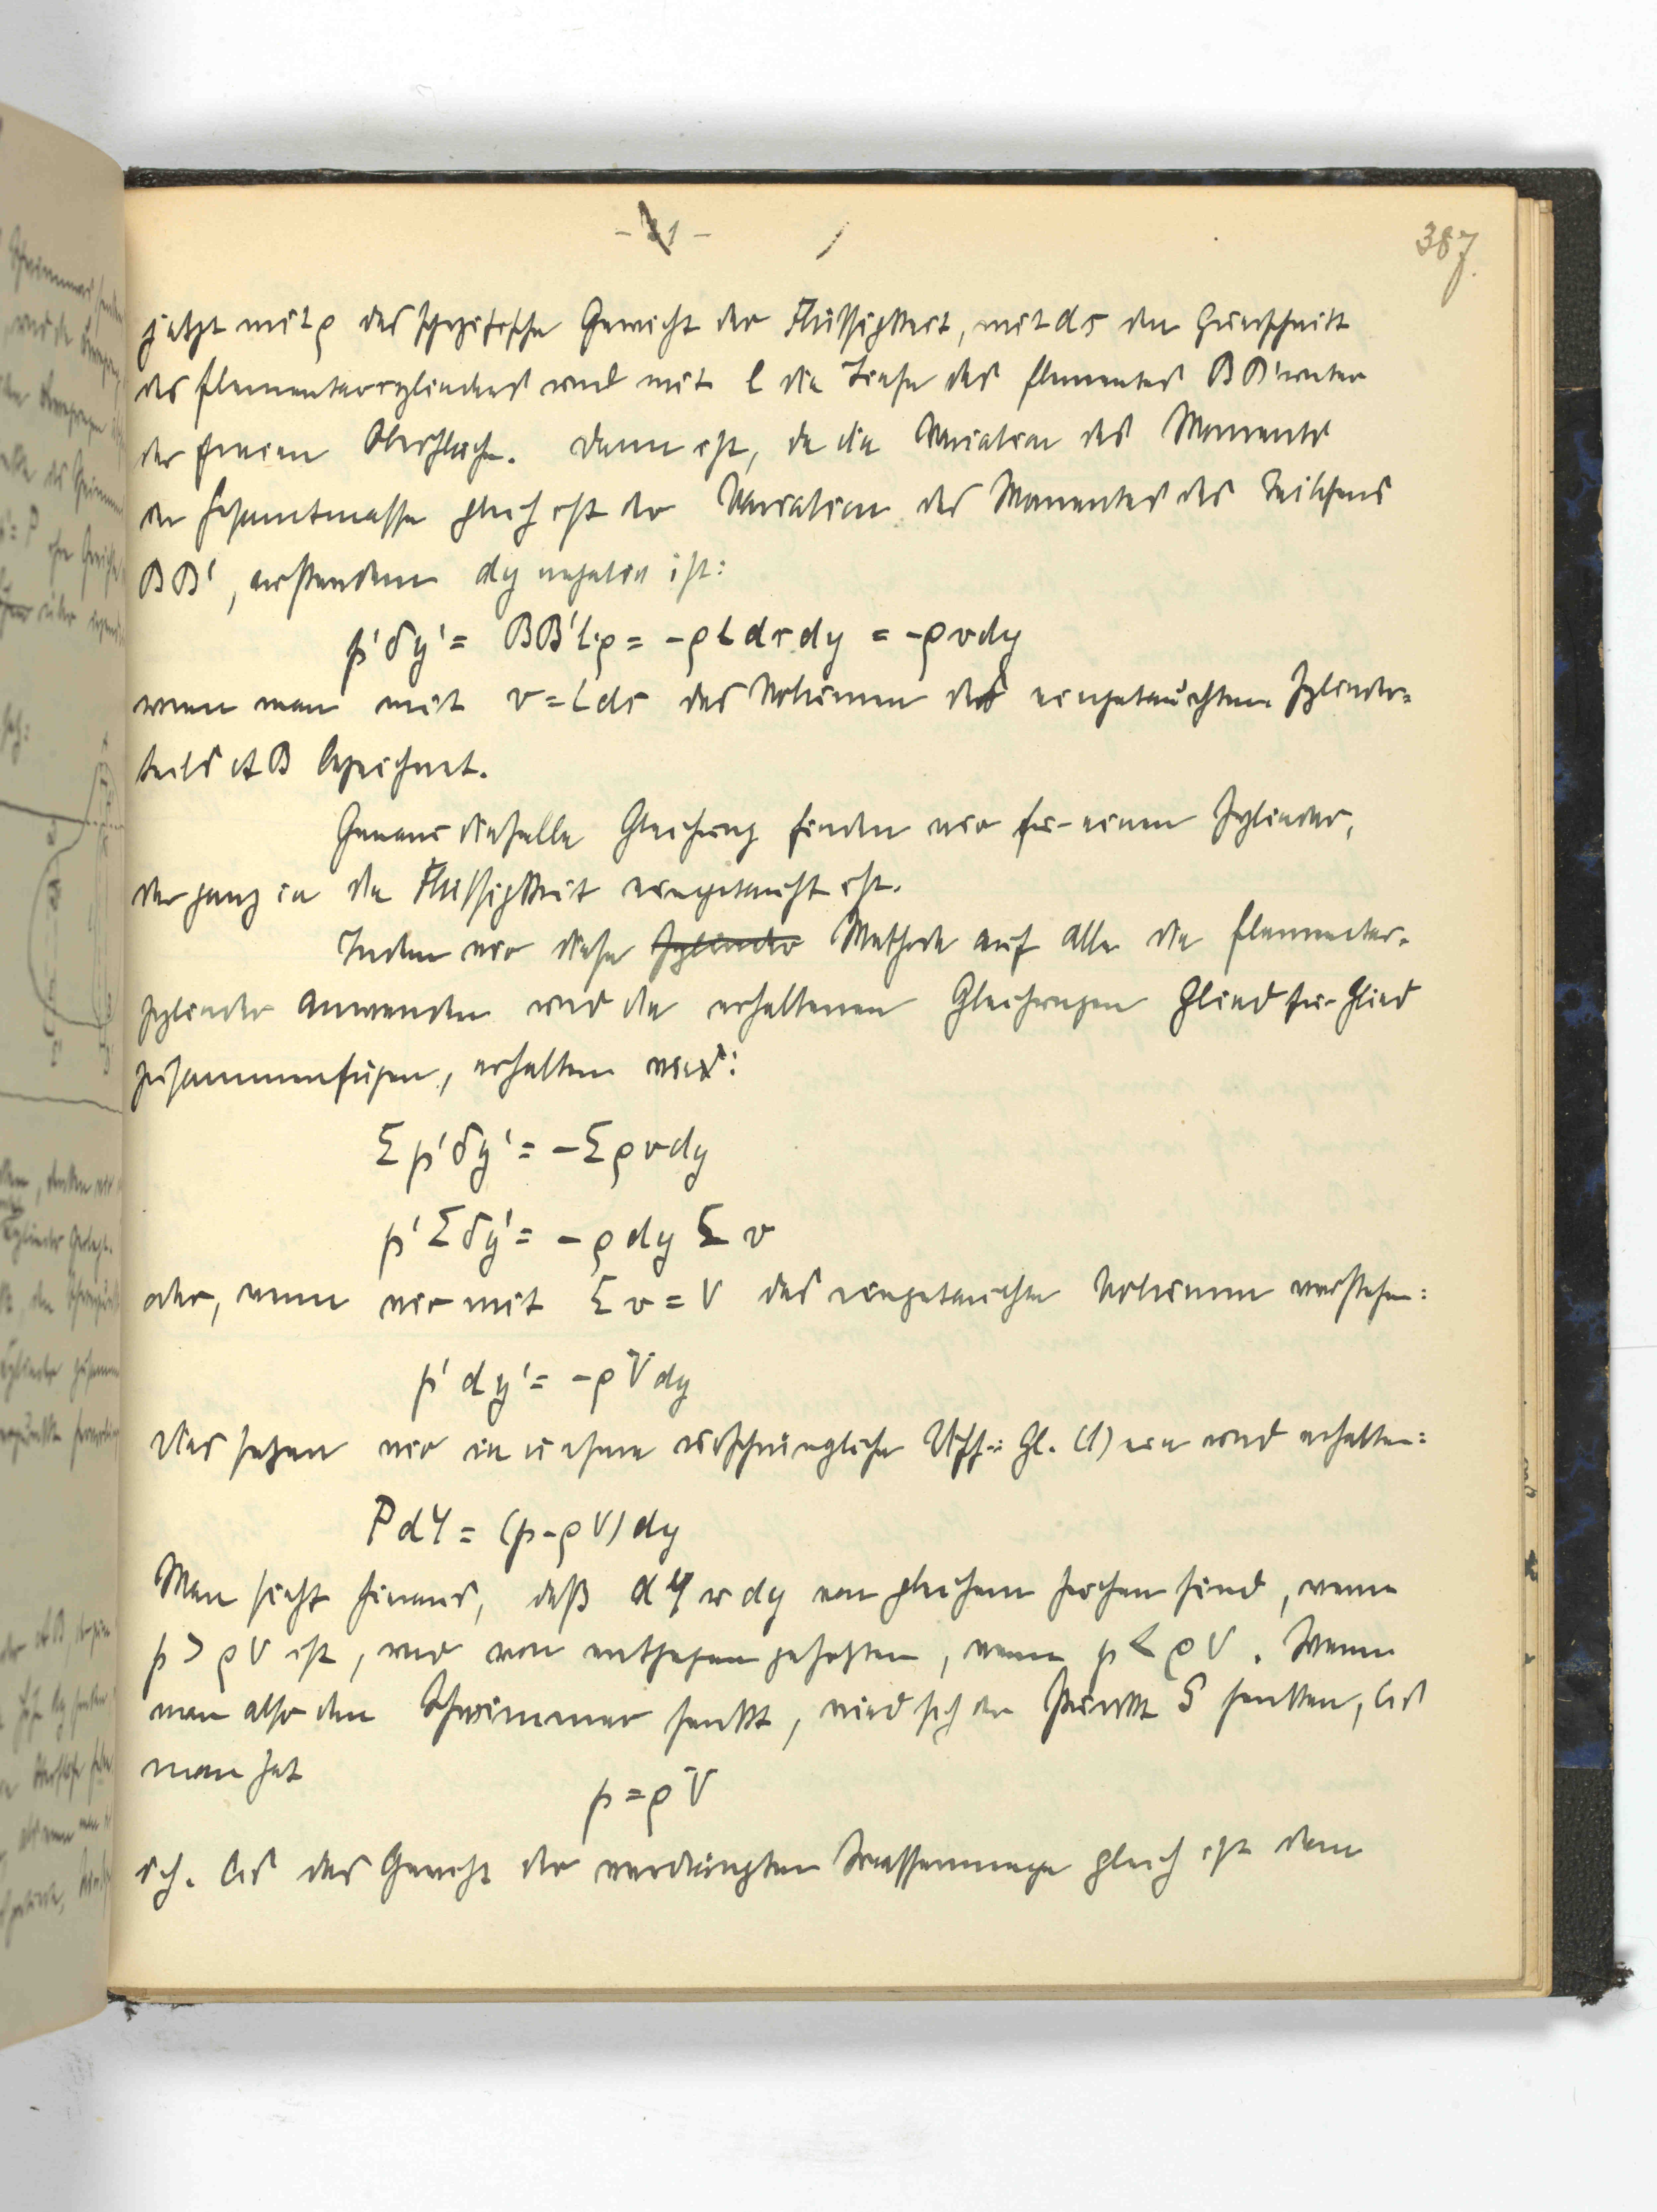 - 21 -
387.
jetzt mit ρ das spezifische Gewicht der Flüssigkeit, mit ds den Querschnitt
des Elementarzylinders und mit l die Tiefe des Elementes BB' unter
der freien Oberfläche. Dann ist, da die Variation des Moments
der Gesamtmasse gleich ist der Variation des Momentes des Teilchens
BB', außerdem dy negativ ist:
p'δy' = BB'lρ = -ρldsdy = -ρvdy
wenn man mit v = lds das Volumen des eingetauchten Zylinder-
teils AB bezeichnet.
Genau dieselbe Gleichung finden wir für einen Zylinder,
der ganz in die Flüssigkeit eingetaucht ist.
Indem wir diese Zylinder Methode auf alle die Elementar-
zylinder anwenden und die erhaltenen Gleichungen Glied für Glied
zusammenfügen, erhalten wir:
Σp'δy' = -Σρvdy
p'Σδy' = -ρdyΣv
oder, wenn wir mit Σv = V das eingetauchte Volumen verstehen:
p'dy' = -ρVdy
Dies setzen wir in unsere ursprüngliche Gl. (1) ein und erhalten:
PdY = (p-ρV)dy
Man sieht hieraus, daß dY u dy von gleichem Zeichen sind, wenn
p > ρV ist, und von entgegengesetzten, wenn p < ρV. Wenn
man also den Schwimmer senkt, wird sich der Punkt S senken, bis
man hat
p = ρV
d.h. bis das Gewicht der verdrängten Wassermenge gleich ist dem